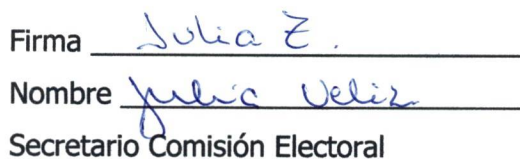 Firma Julia Z.
Nombre Julia Veliz
Secretario Comisión Electoral